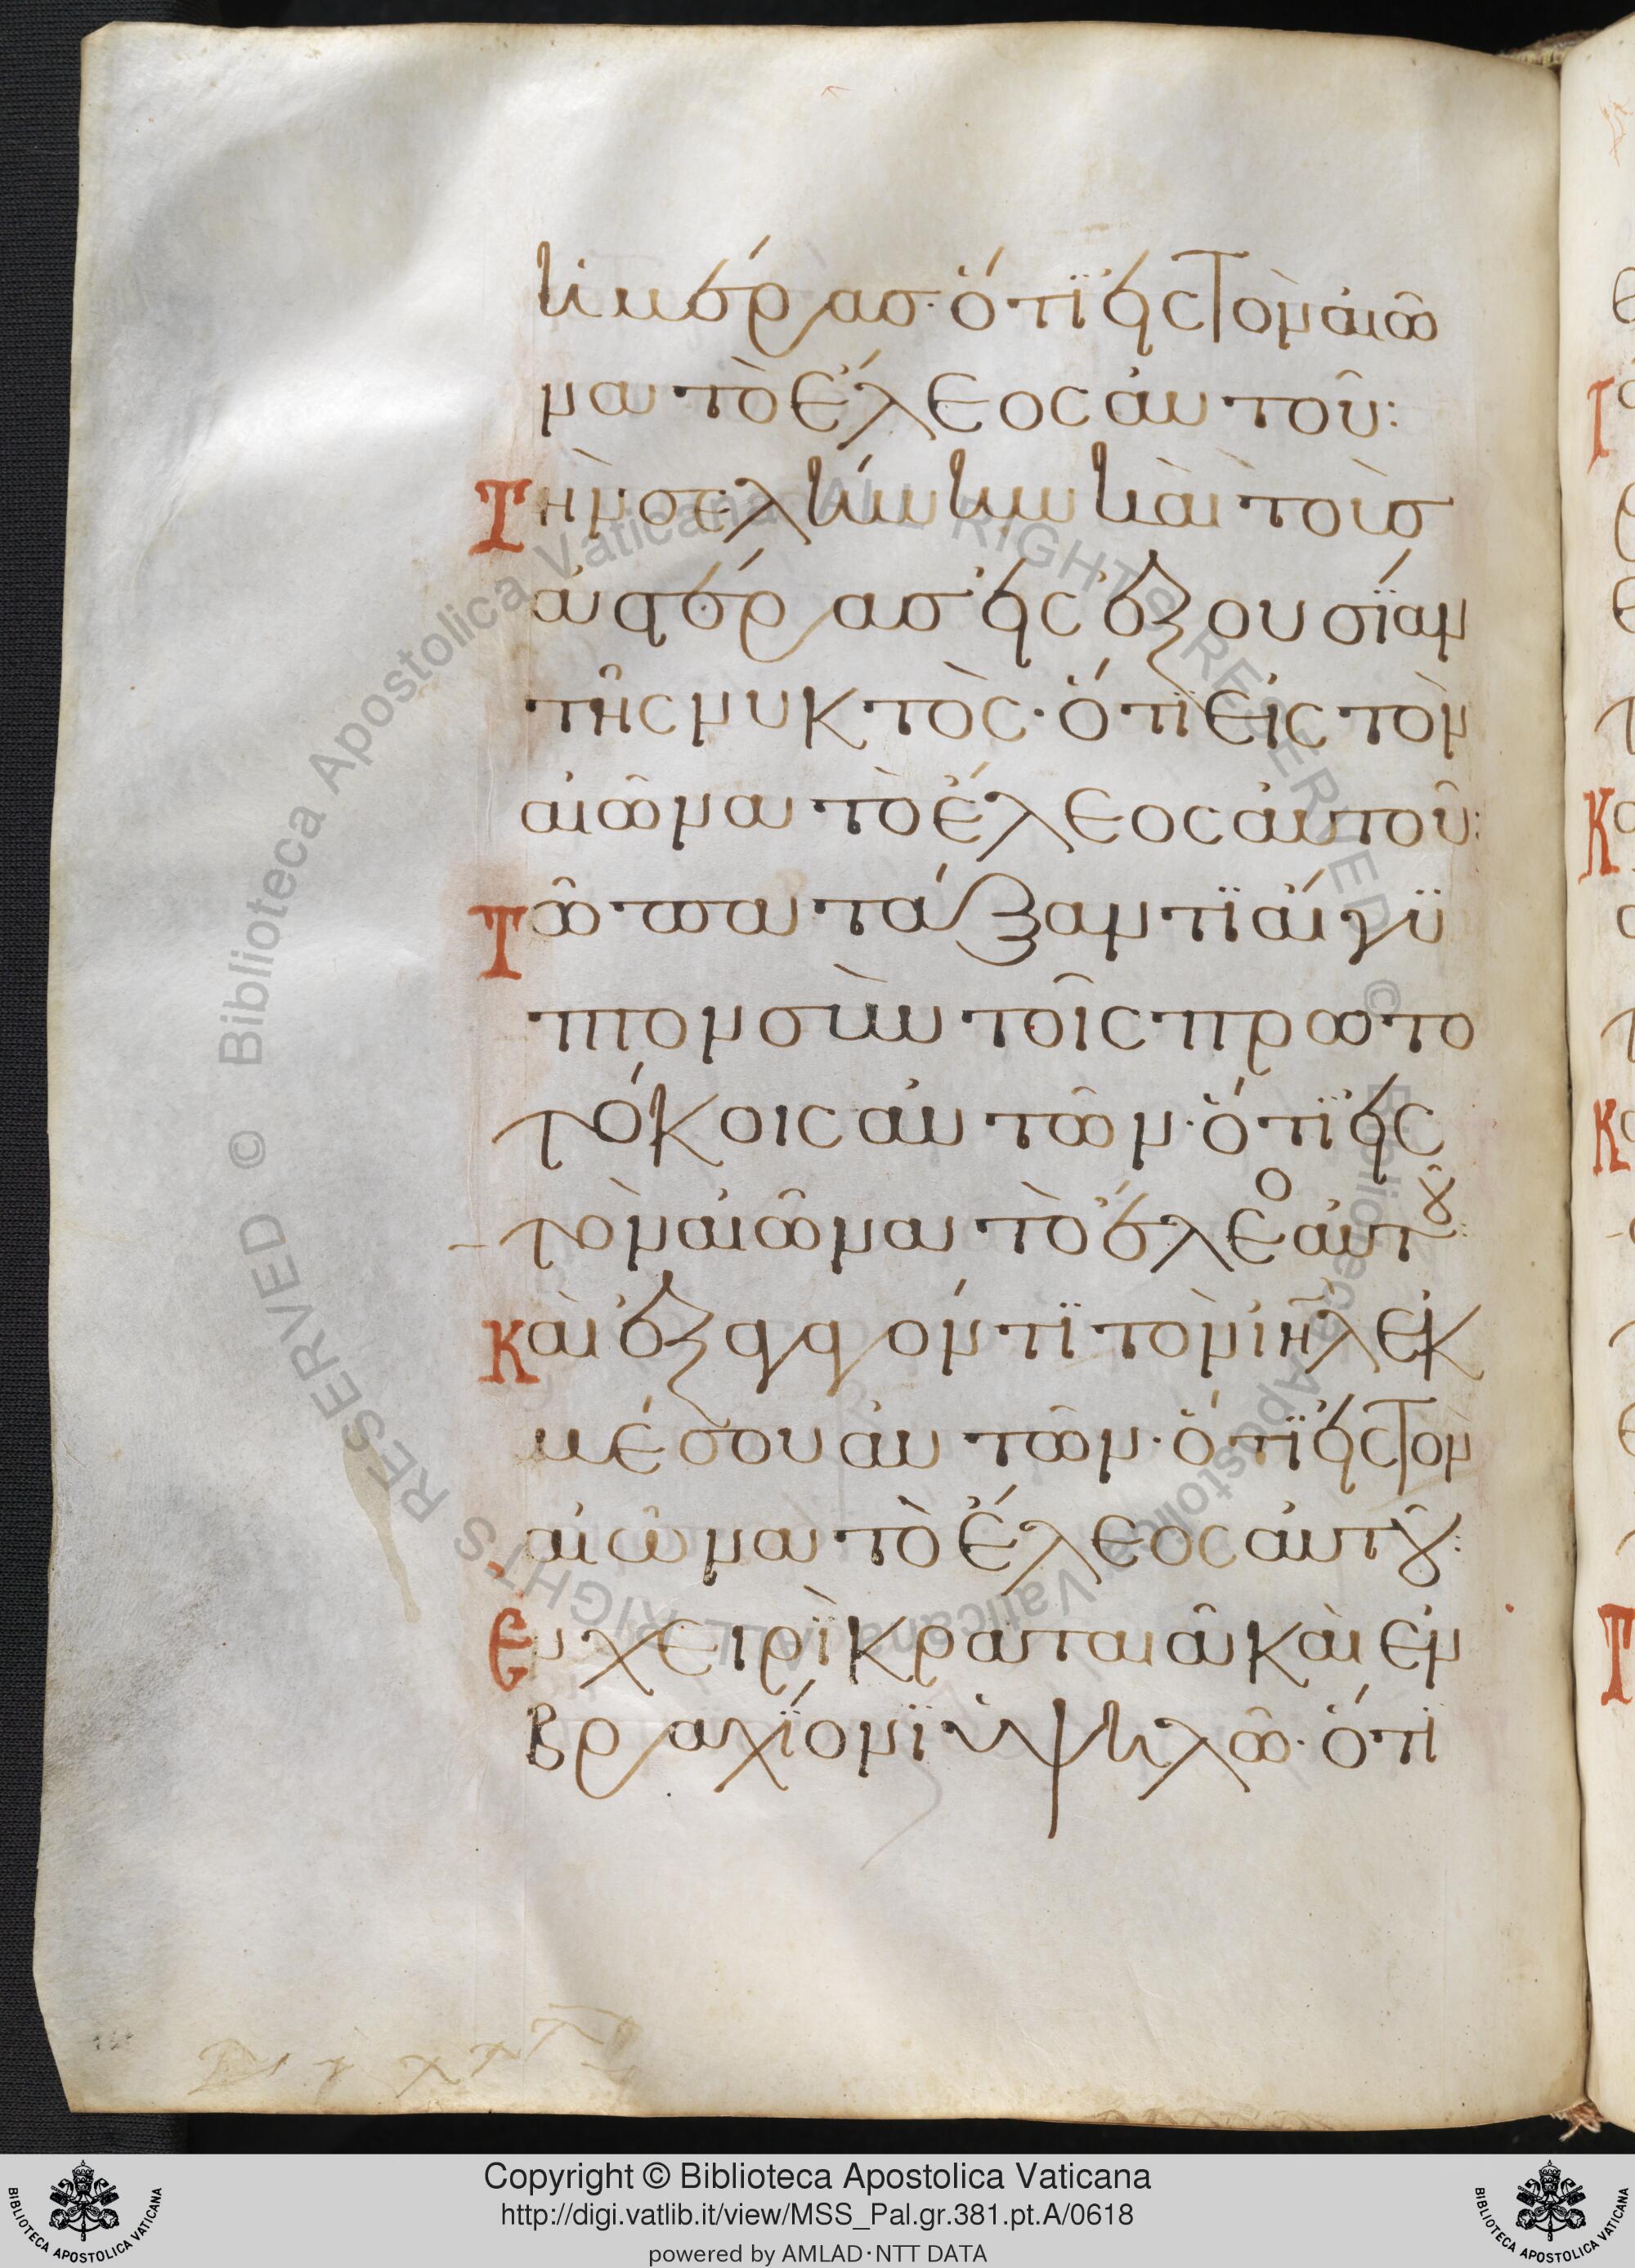 ἡμέρασ· ὅτϊ εἰς τὸν αἰῶ
να τὸ ἔλεος ἀυτοῦ:
Τὴν σελήνην κὰι τοὺσ
ἀστέρασ εἰς ἐξουσΐαν
τῆς νυκτὸς· ὅτϊ εἰς τὸν
αἰῶνα τὸ ἔλεος ἀυτοῦ:
Τῶ πατάξαντϊ ἄιγϋ
πτον σὺν τοῖς πρωτο
τόκοις ἀυτῶν· ὅτϊ εἰς
τὸν αἰῶνα τὸ ἔλεο ἀυτοῦ:
Κὰι ἐξαγαγόντϊ τὸν ἰηλ ἐκ
μέσου ἀυτῶν· ὅτϊ εἰς τὸν
αἰῶνα τὸ ἔλεος ἀυτοῦ:
Ἐν χειρῒ κραταιᾶ κὰι ἐν
βραχΐονϊ ὑψηλῶ· ὅτι
Biblioteca Apostolica Vaticana ALL RIGHTS RESERVED ©
Biblioteca Apostolica Vaticana ALL RIGHTS RESERVED ©
Copyright © Biblioteca Apostolica Vaticana
http://digi.vatlib.it/view/MSS_Pal.gr.381.pt.A/0618
powered by AMLAD·NTT DATA
BIBLIOTECA APOSTOLICA VATICANA
BIBLIOTECA APOSTOLICA VATICANA